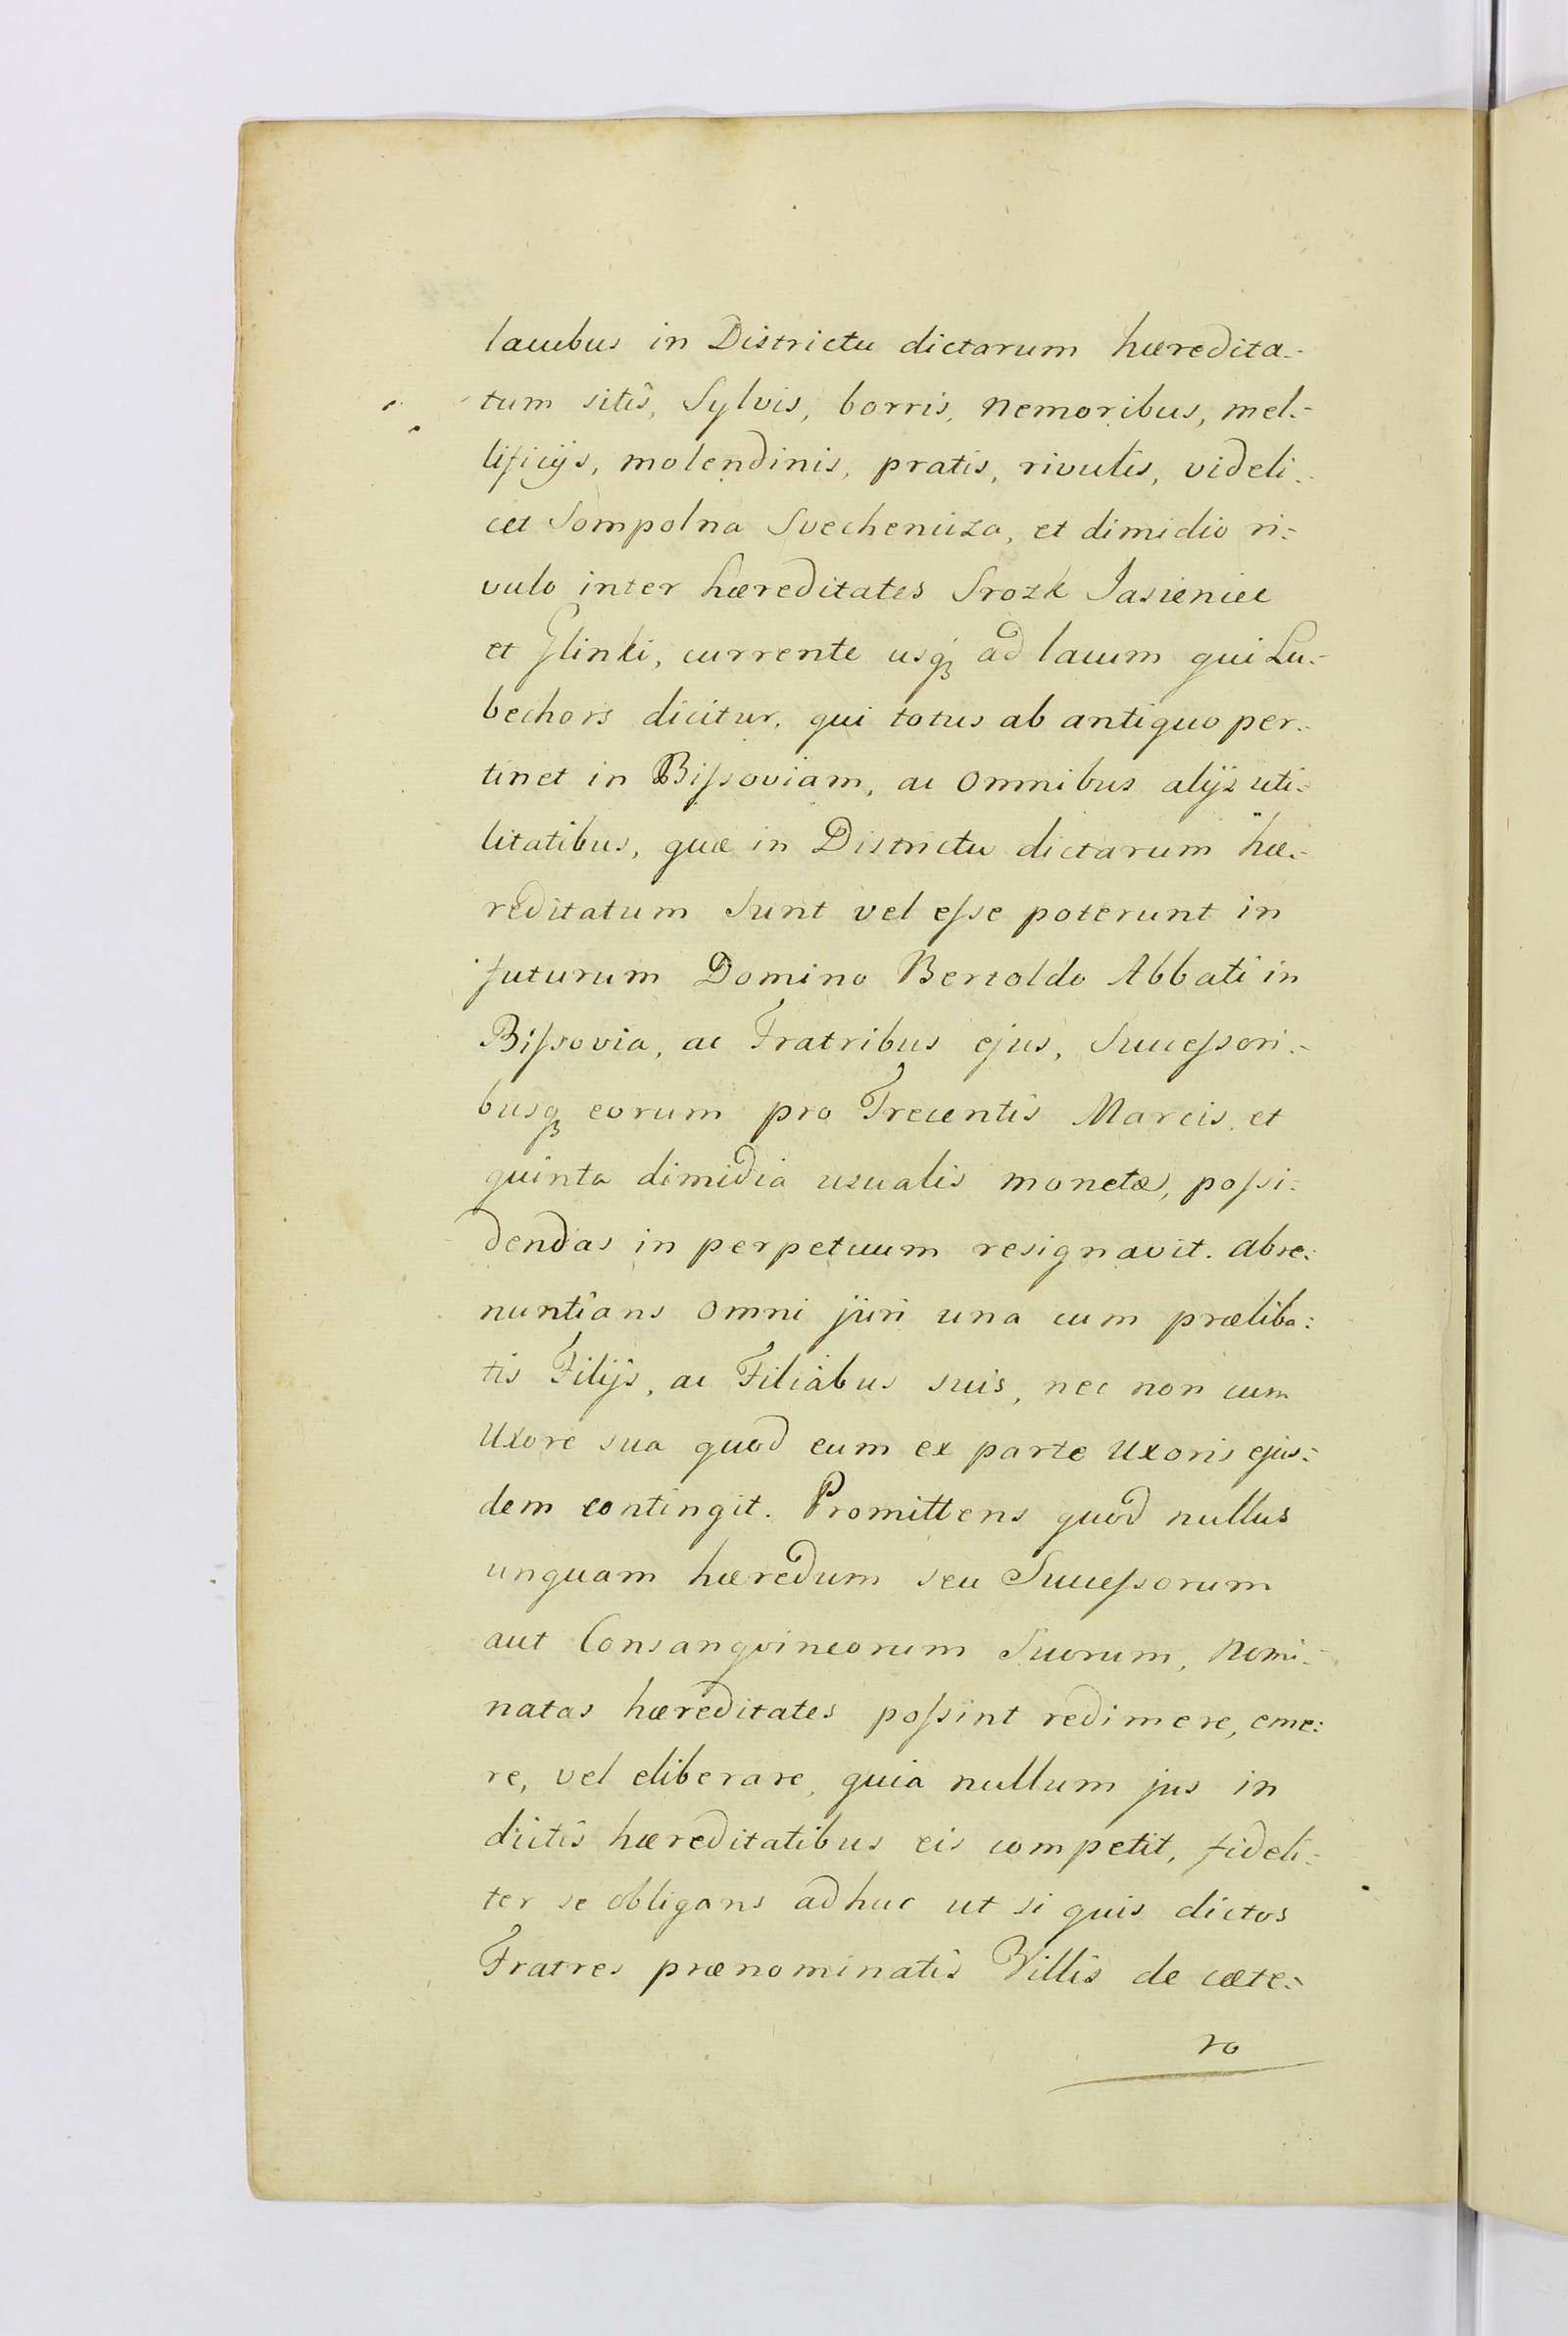 lacubus in Districtu dictarum hæredita-
tum sitis, Sylvis, borris, nemoribus, mel-
lificijs, molendinis, pratis, rivulis, videli-
cet Sompolna Svecheniiza, et dimidio ri-
vulo inter hæreditates Srozk Jasieniec
et Glinki, currente usq₃ ad lacum qui Lu-
bechors dicitur, qui totus ab antiquo per-
tinet in Bissoviam, ac omnibus alijs uti-
litatibus, quæ in Districtu dictarum hæ-
reditatum sunt vel esse poterunt in
futurum Domino Bertoldo Abbati in
Bissovia, ac Fratribus ejus, Successori-
busq₃ eorum pro Trecentis Marcis et
quinta dimidia usualis monetæ, possi-
dendas in perpetuum resignavit. abre-
nuntians omni juri una cum præliba-
tis Filijs, ac Filiabus suis, nec non cum
Uxore sua quod eum ex parte Uxoris ejus-
dem contingit. Promittens quod nullus
unquam hæredum seu Successorum
aut Consangvineorum Suorum, nomi-
natas hæreditates possint redimere, eme-
re, vel eliberare, quia nullum jus in
dictis hæreditatibus eis competit, fideli-
ter se obligans adhuc ut si quis dictos
Fratres prænominatis Villis de cæte-
ro